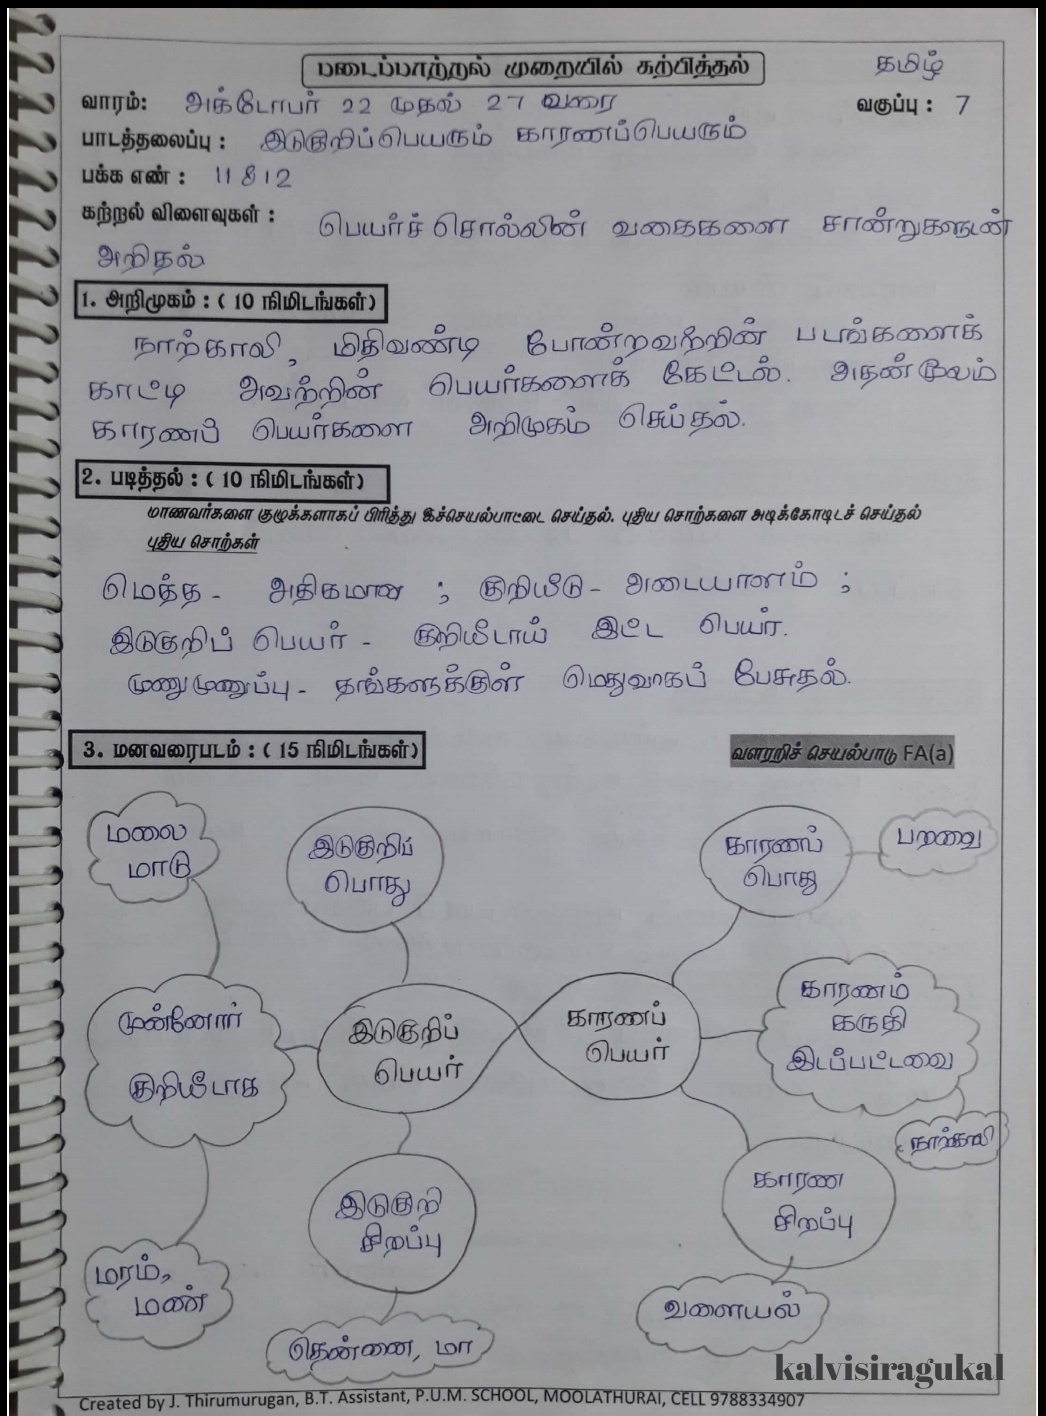 படைப்பாற்றல் முறையில் கற்பித்தல்
தமிழ்
வாரம்: அக்டோபர் 22 முதல் 27 வரை
வகுப்பு : 7
பாடத்தலைப்பு : இடுகுறிப்பெயரும் காரணப்பெயரும்
பக்க எண் : 11 & 12
கற்றல் விளைவுகள் : பெயர்ச் சொல்லின் வகைகளை சான்றுகளுடன்
அறிதல்
1. அறிமுகம் : ( 10 நிமிடங்கள்)
நாற்காலி, மிதிவண்டி போன்றவற்றின் படங்களைக்
காட்டி அவற்றின் பெயர்களைக் கேட்டல். அதன்மூலம்
காரணப் பெயர்களை அறிமுகம் செய்தல்.
2. படித்தல் : ( 10 நிமிடங்கள்)
மாணவர்களை குழுக்களாகப் பிரித்து இச்செயல்பாட்டை செய்தல். புதிய சொற்களை அடிக்கோடிடச் செய்தல்
புதிய சொற்கள்
மெத்த - அதிகமான ; குறியீடு - அடையாளம் ;
இடுகுறிப் பெயர் - குறியீடாய் இட்ட பெயர்.
முணுமுணுப்பு - தங்களுக்குள் மெதுவாகப் பேசுதல்.
3. மனவரைபடம் : ( 15 நிமிடங்கள்)
வளரறிச் செயல்பாடு FA(a)
மலை
மாடு
இடுகுறிப்
பொது
காரணப்
பொது
பறவை
முன்னோர்
குறியீடாக
இடுகுறிப்
பெயர்
காரணப்
பெயர்
காரணம்
கருதி
இடப்பட்டவை
நாற்காலி
இடுகுறி
சிறப்பு
காரண
சிறப்பு
மரம்,
மண்
தென்னை, மா
வளையல்
kalvisiragukal
Created by J. Thirumurugan, B.T. Assistant, P.U.M. SCHOOL, MOOLATHURAI, CELL 9788334907